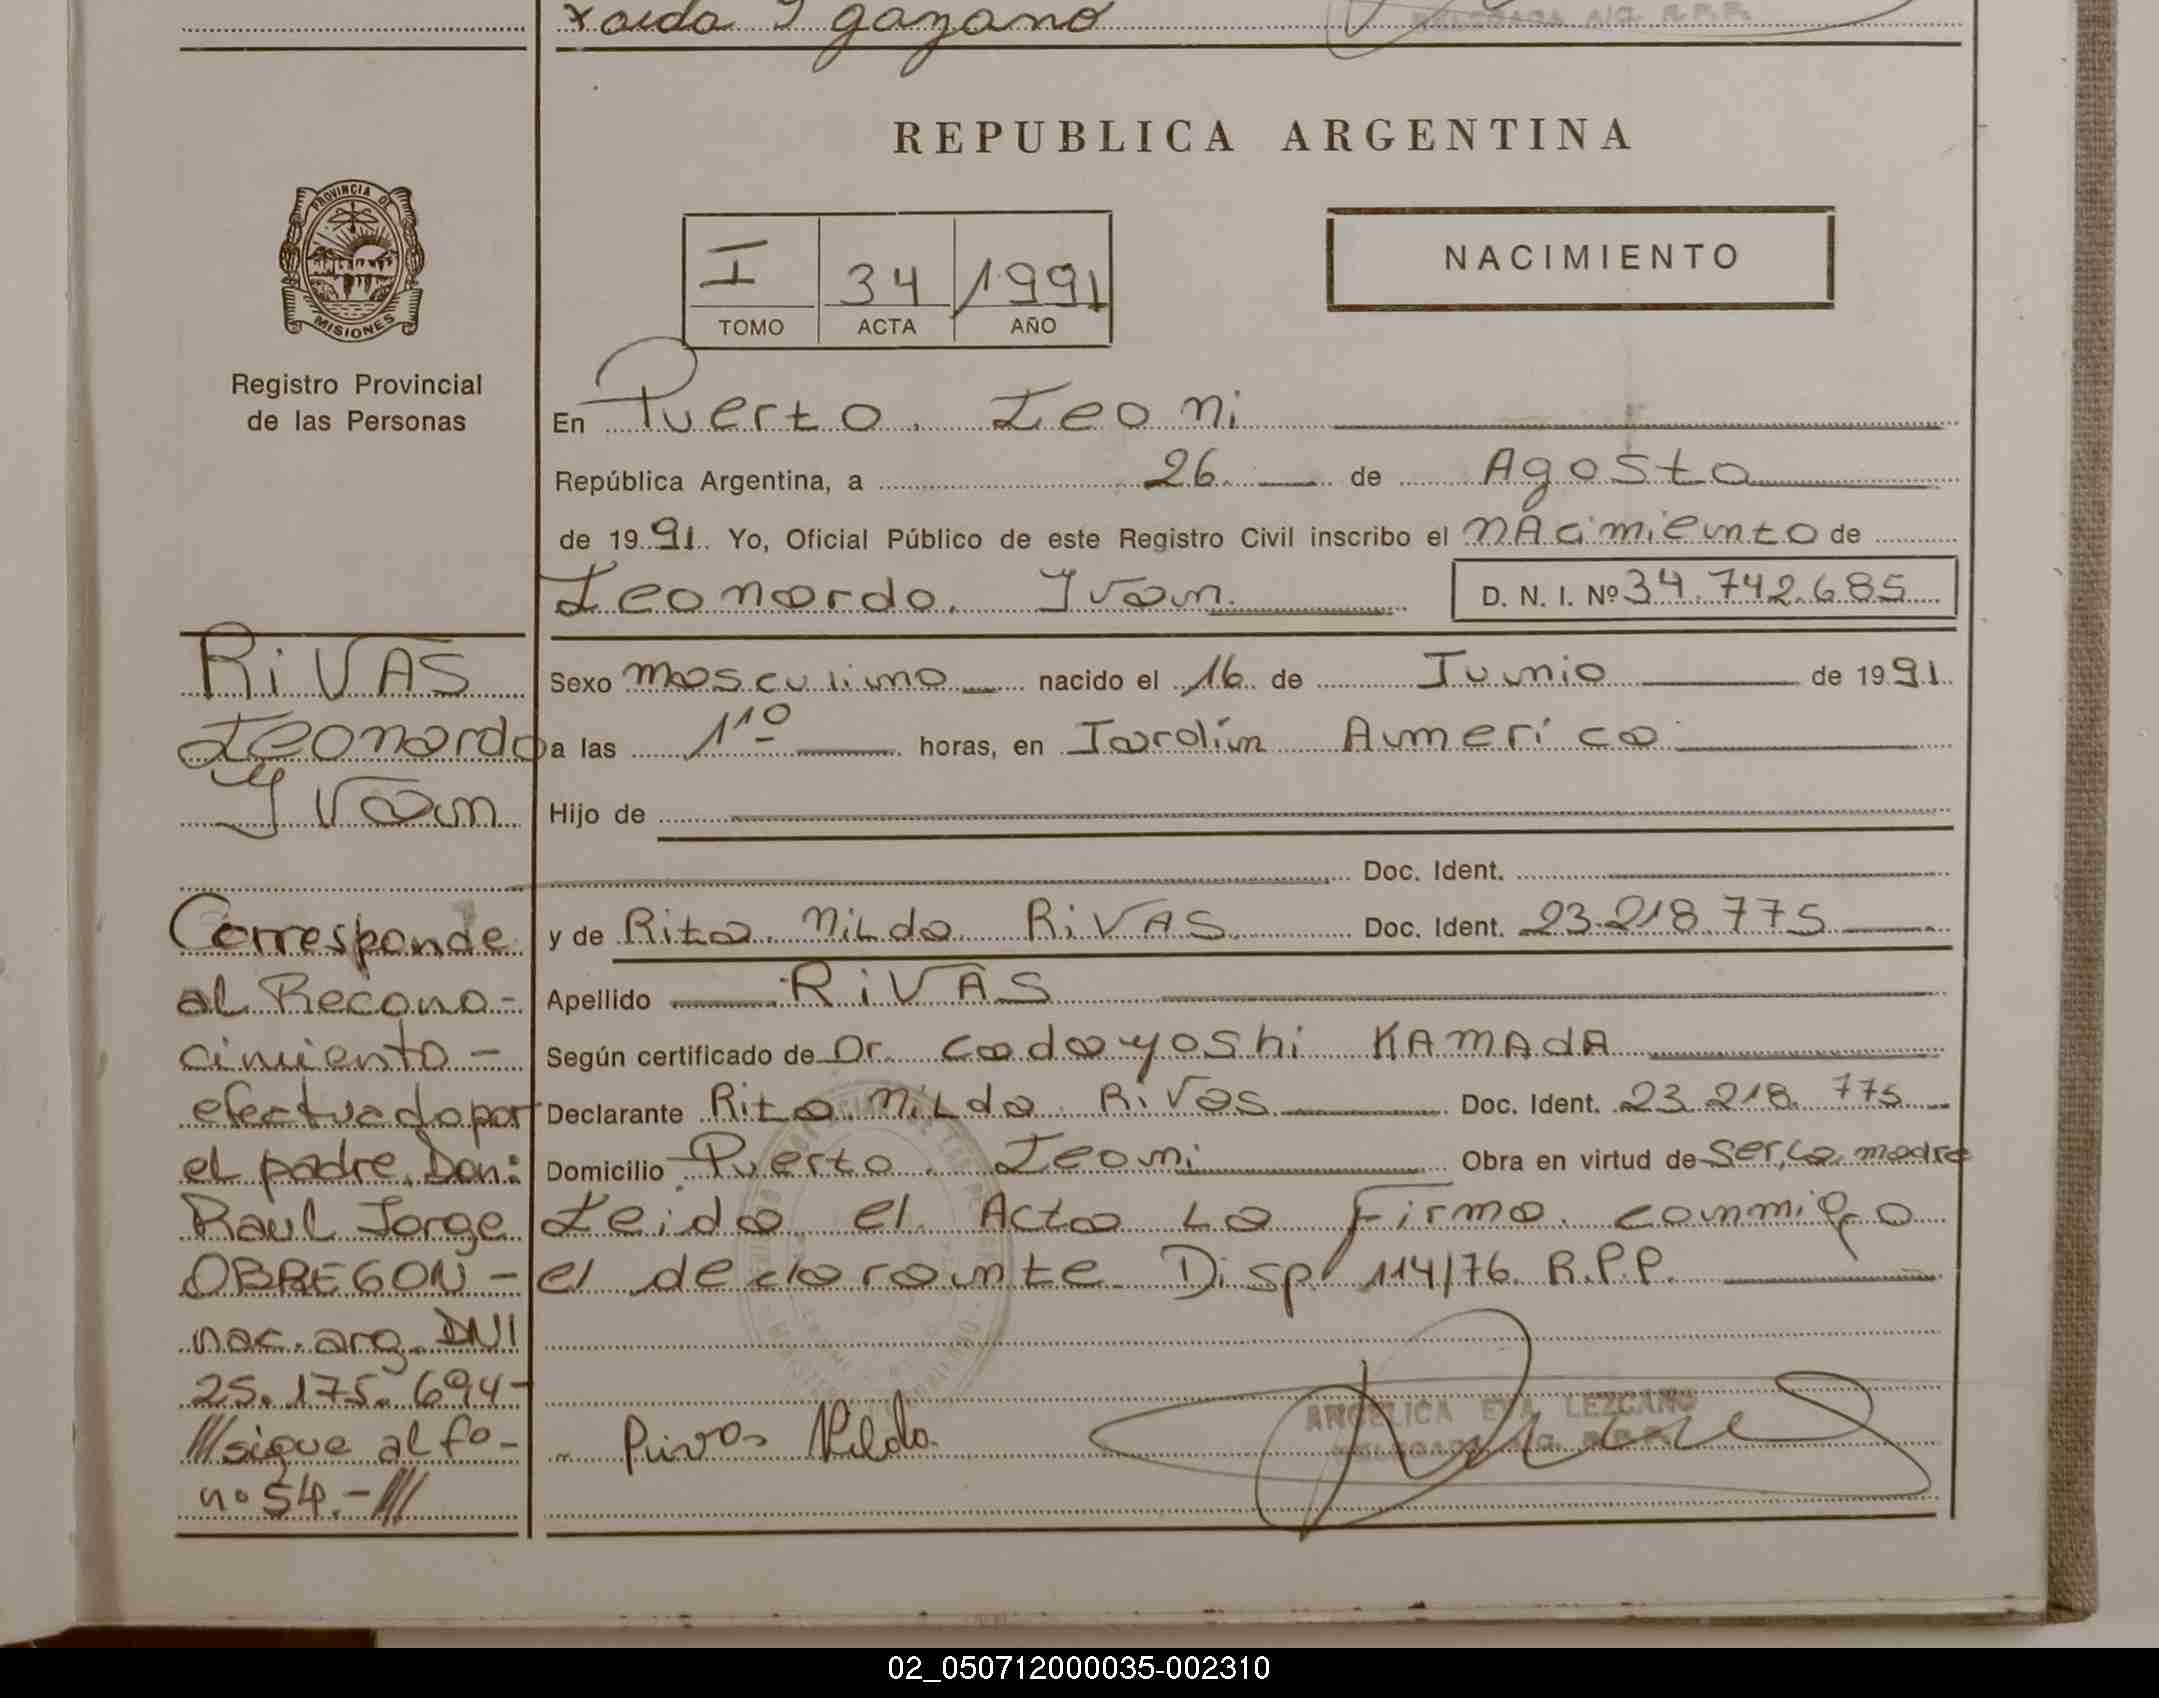 REPUBLICA ARGENTINA
PROVINCIA DE
MISIONES
Registro Provincial
de las Personas
I 34 1991
TOMO ACTA AÑO
NACIMIENTO
En Puerto Leoni
República Argentina, a 26 de Agosto
de 1991 Yo, Oficial Público de este Registro Civil inscribo el nacimiento de
Leonardo Ivan D. N. I. Nº 34.742.685
Sexo masculino nacido el 16 de Junio de 1991
a las 11º horas, en Jardín America
Hijo de
Doc. Ident.
y de Rita Nilda RIVAS Doc. Ident. 23.218.775
Apellido RIVAS
Según certificado de Dr. Cadayoshi KAMADA
Declarante Rita Nilda Rivas Doc. Ident. 23.218.775
Domicilio Puerto Leoni Obra en virtud de ser la madre
Leida el Acta La Firma conmigo
el declarante Disp 114/76 R.P.P.
Rivas Nilda
ANGELICA EVA LEZCANO
RIVAS
Leonardo
Ivan
Corresponde
al Recono-
cimiento-
efectuado por
el padre Don:
Raul Jorge
OBREGON-
nac. arg. DNI
25.175.694-
///sigue al fo-
nº 54.-///
02_050712000035-002310